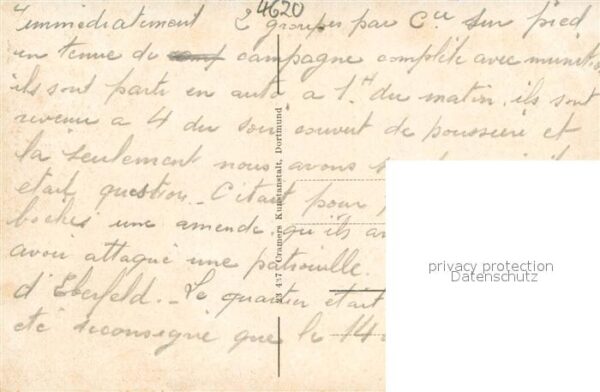 4620
immédiatement 2 groupes par Cie sur pied
en tenue de campagne complète avec munitions
ils sont parti en auto a 1H du matin, ils sont
revenu a 4 du soir couvert de poussière et
la seulement nous avons
etait question. C'était pour
boches une amende qu'ils
avoir attaqué une patrouille.
d'Eberfeld. Le quartier était
été déconsigné que le 14
23 437 Cramers Kunstanstalt, Dortmund
privacy protection
Datenschutz